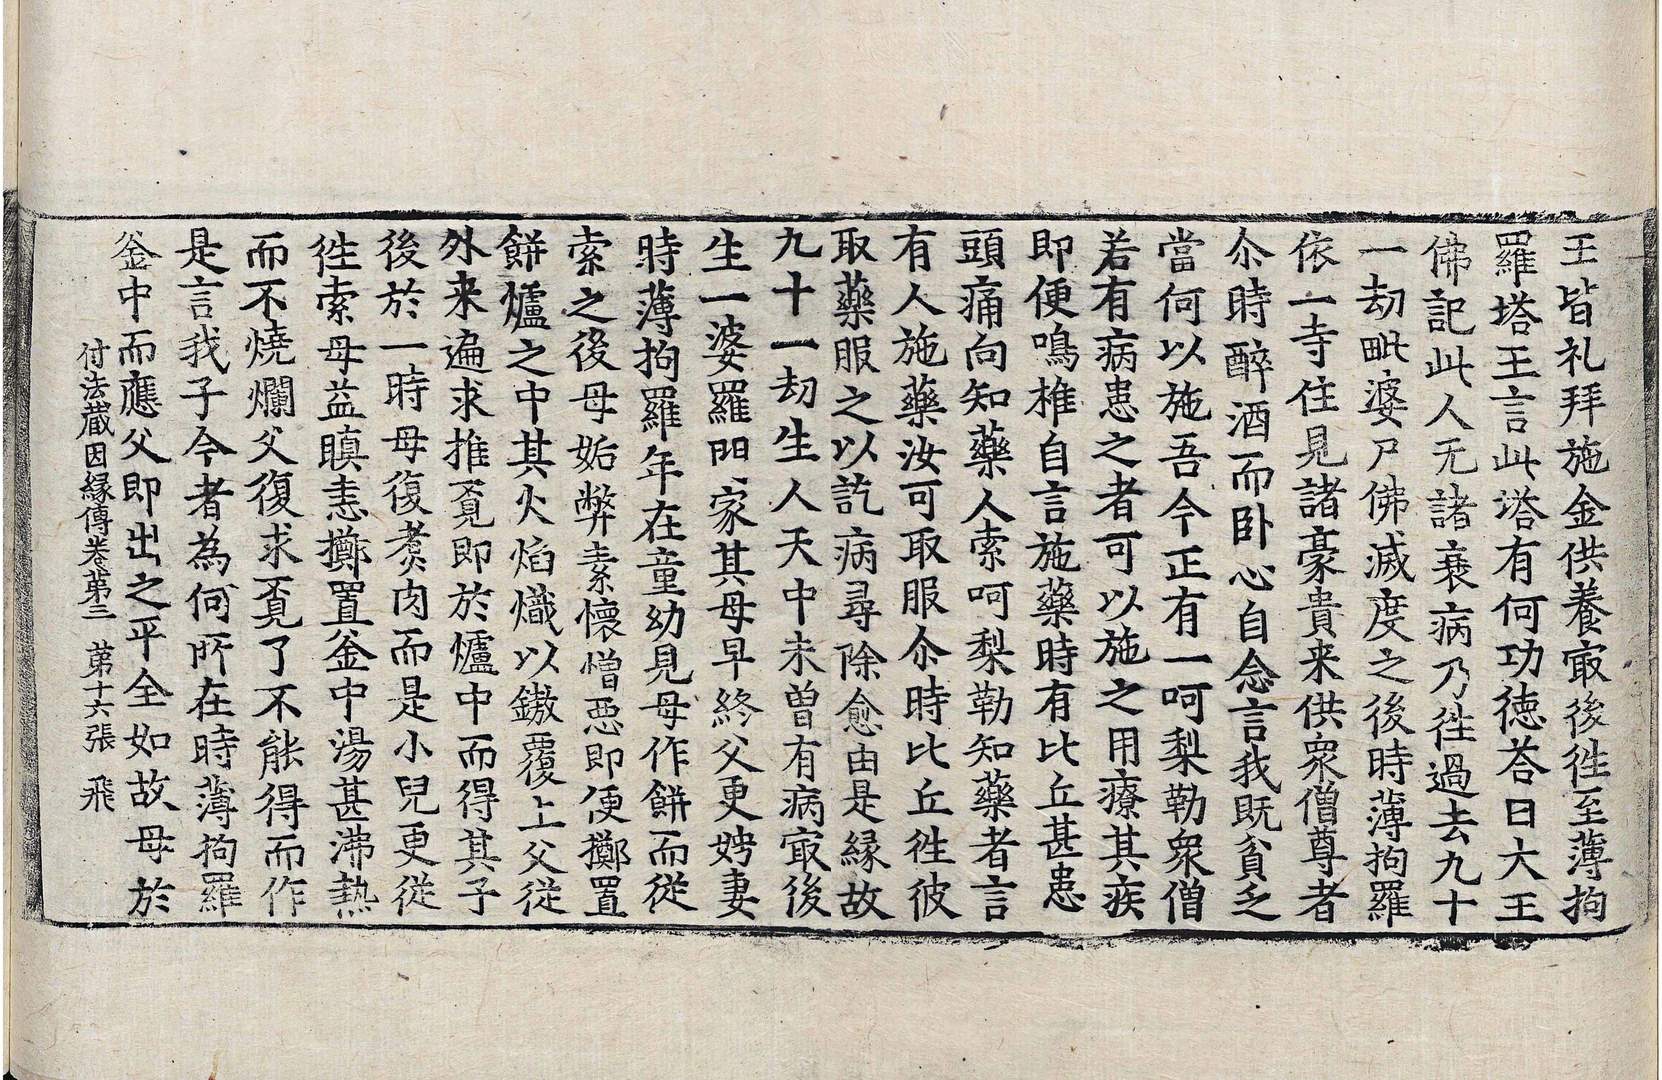 王皆礼拜施金供養㝡後徃至薄拘
羅塔王言此塔有何功徳荅曰大王
佛記此人无諸衰病乃徃過去九十
一劫毗婆尸佛滅度之後時薄拘羅
依一寺住見諸豪貴来供衆僧尊者
尒時醉酒而卧心自念言我既貧乏
當何以施吾今正有一呵梨勒衆僧
若有病患之者可以施之用療其疾
即便鳴椎自言施藥時有比丘甚患
頭痛向知藥人索呵梨勒知藥者言
有人施藥汝可取服尒時比丘徃彼
取藥服之以訖病尋除愈由是縁故
九十一劫生人天中未曽有病㝡後
生一婆羅門家其母早終父更娉妻
時薄拘羅年在童幼見母作餅而従
索之後母妬弊素懷憎惡即便擲置
餅爐之中其火焰熾以鏊覆上父従
外来遍求推覔即於爐中而得其子
後於一時母復煑肉而是小兒更従
徃索母益瞋恚擲置釜中湯甚沸熱
而不燒爛父復求覔了不能得而作
是言我子今者為何所在時薄拘羅
釜中而應父即出之平全如故母於
付法蔵因縁傳巻第三　第十六張　飛